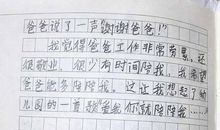 爸爸说了一声谢谢爸爸!"
我觉得爸爸工作非常劳累,还
很敬业,很少有时间陪我,我希望
爸爸能多陪陪我。这让我想起了幼
儿园的一首歌"爸爸你就陪陪我……